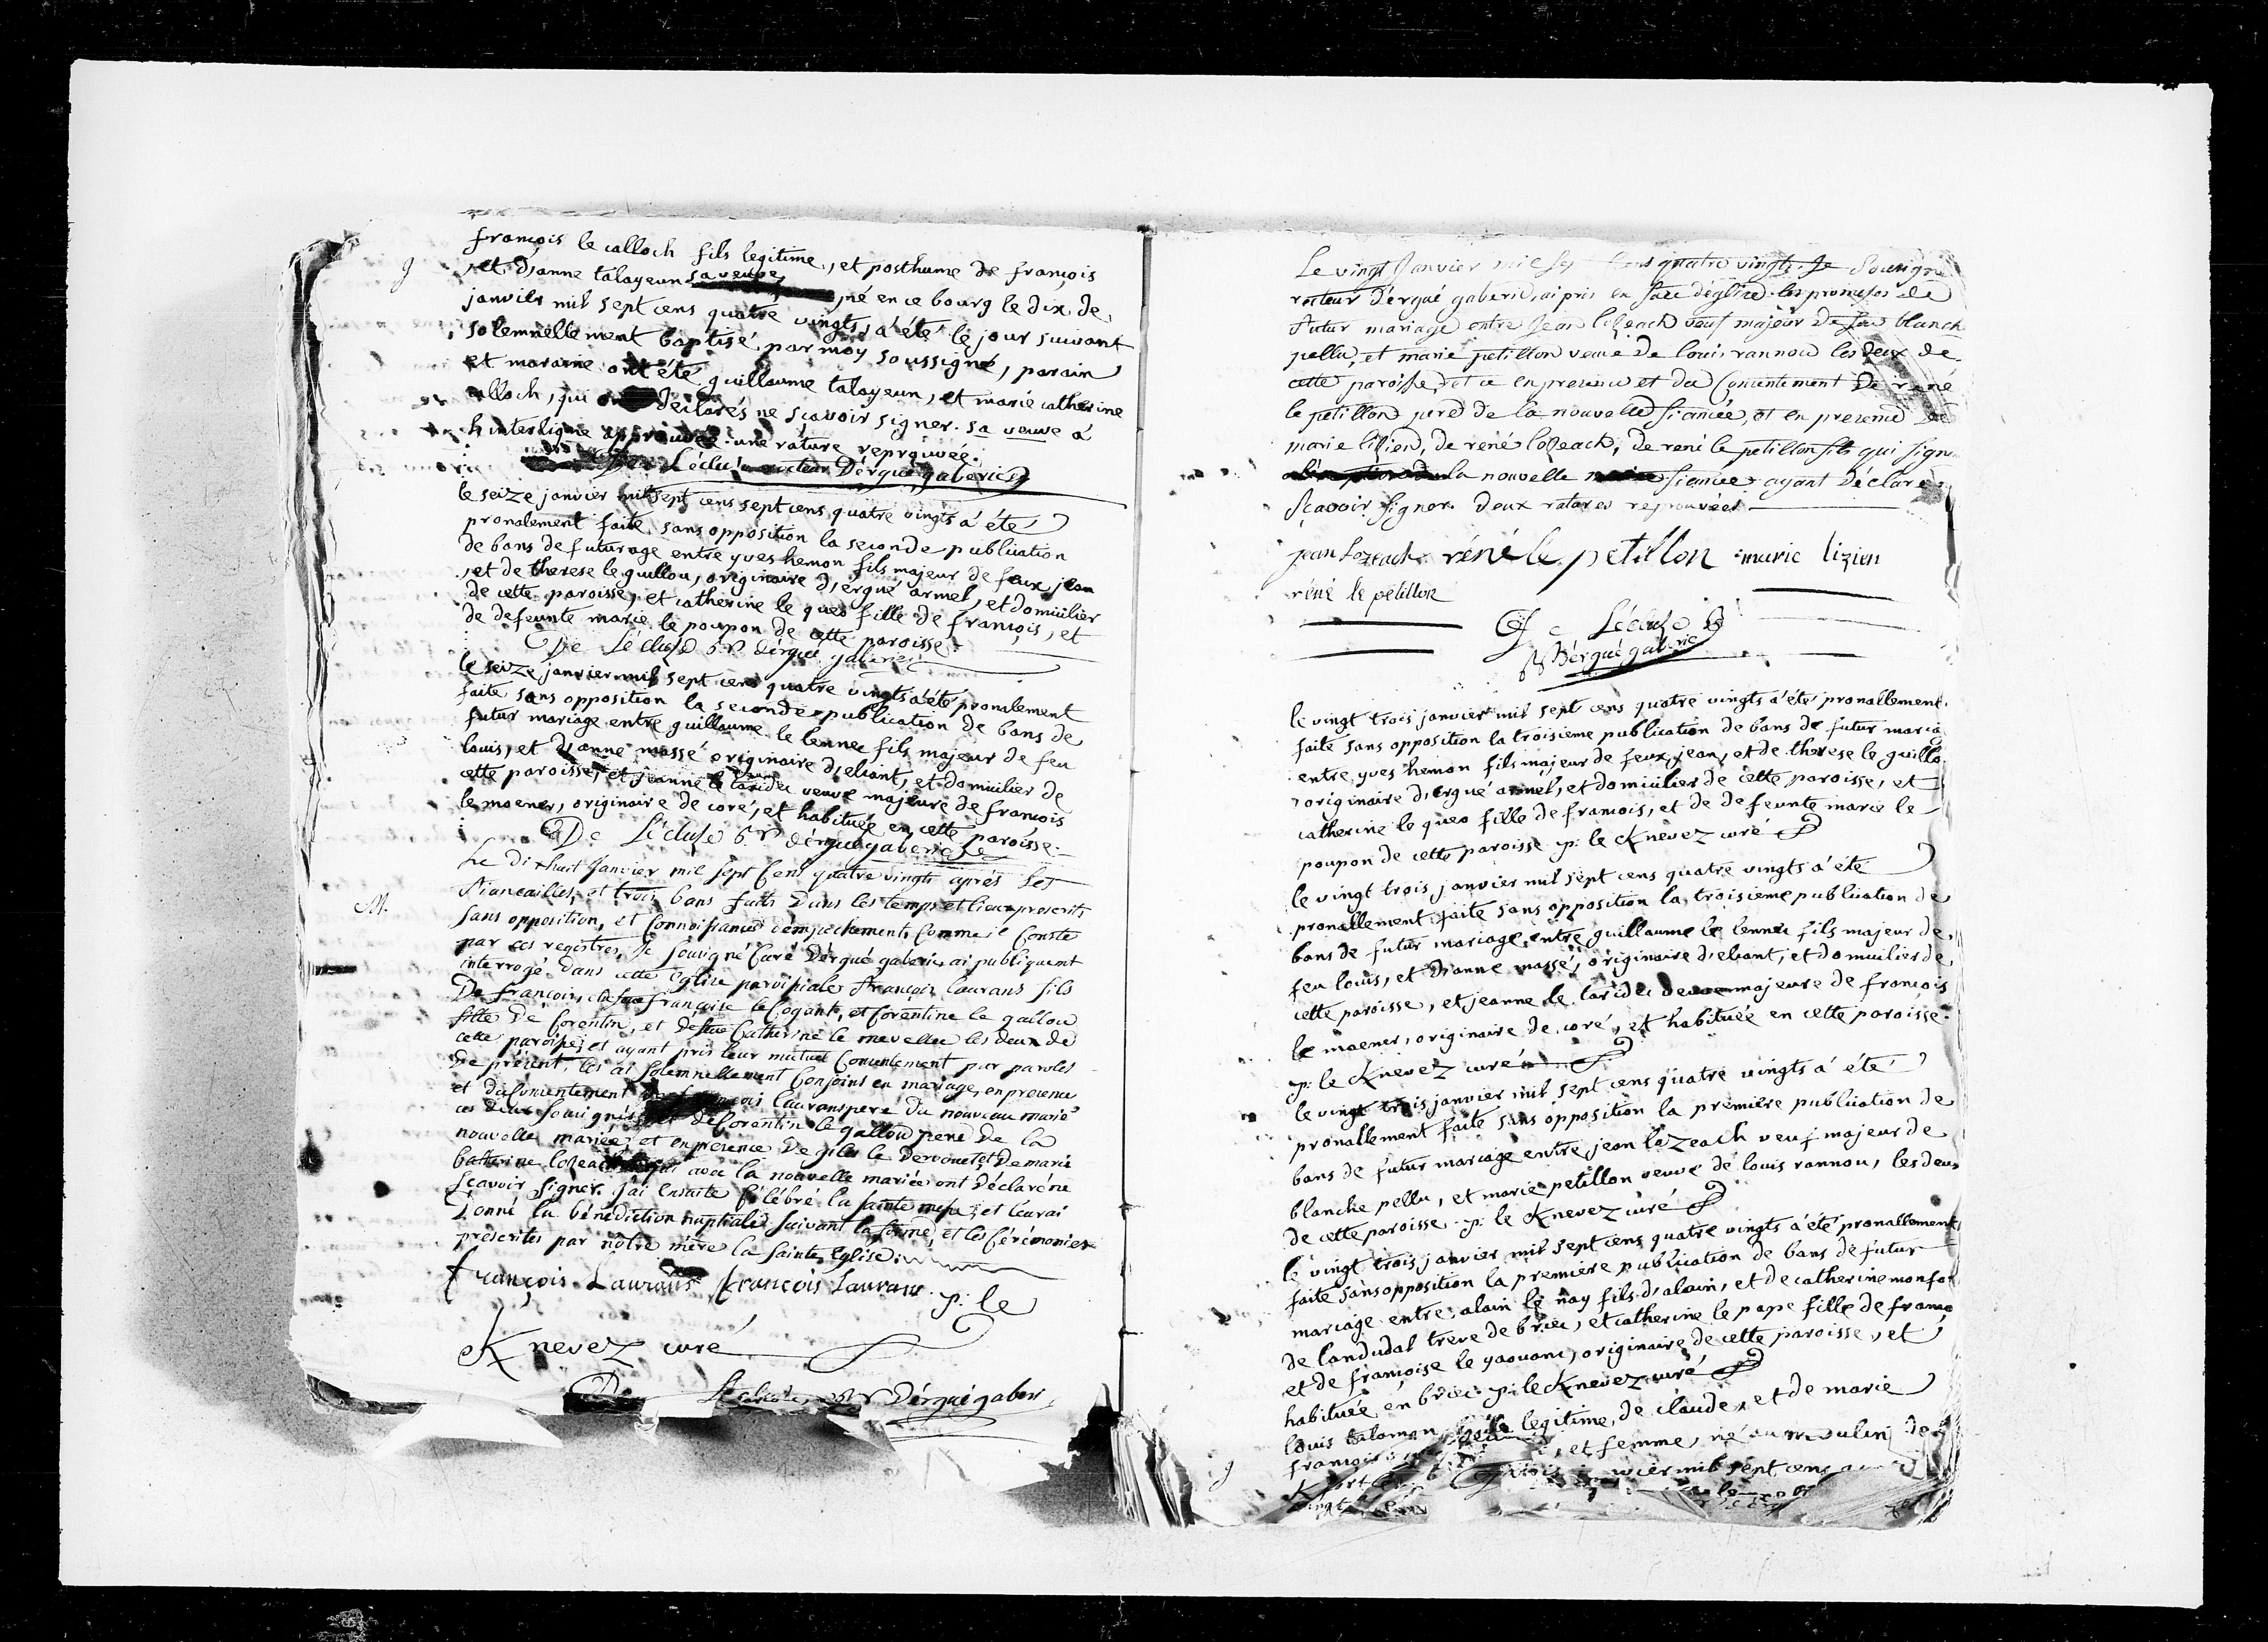 françois le calloch fils legitime, et posthume de françois
g
et d'anne talayeun sa veuve, né en ce bourg le dix de
janvier mil sept cens quatre vingts, a été le jour suivant
solemnellement baptisé par moy soussigné, parain
et maraine ont été guillaume talayeun, et marie catherine
calloch, qui ont declarés ne sçavoir signer. sa veuve à
h'interligne approuvée. une rature reprouvée.
De Lécluse recteur Dérgué gaberic
le seize janvier mil sept cens sept cens quatre vingts a été
pronalement faite sans opposition la seconde publication
de bans de futurage entre yves hemon fils majeur de feux jean
, et de therese le guillou, originaire d'ergué armel, et domicilier
de cette paroisse, et catherine le queo fille de françois, et
de defeunte marie le poupon de cette paroisse.
De Lécluse r. dérgué gaberic
le seize janvier mil sept cens quatre vingts a été pronalement
faite sans opposition la seconde publication de bans de
futur mariage entre guillaume le lennec fils majeur de feu
louis, et d'anne massé originaire d'eliant, et domicilier de
cette paroisse, et jeanne le laridec veuve majeure de françois
le maener, originaire de coré, et habituée en cette paroisse.
De Lécluse r. dérgué gaberic
Le dixhuit Janvier mil sept Cens quatre vingts après les
M.
fiancailles, et trois bans faits dans les temps et lieux prescrits
sans opposition, et Connoissance d'empechement, Comme il Conste
par ces registres, Je Souigné Curé Dérgué gaberic, ai publiquemt
interrogé dans cette église paroissiale François laurans fils
De françois, de feue françoise le Cogant, et Corentine le gallou
fille De Corentin, et de feue Catherine le mevellec les deux de
cette paroisse, et ayant pris leur mutuel Consentement par paroles
De présent, les ai solemnellement Conjoins en mariage, en presence
et du Consentement de françois laurans pere du nouveau marié
ces deux souignés, et de Corentin le gallou pere De la
nouvelle mariée, et en presence De giles le Dervouet, et De marie
Catherine lozeach qui avec la nouvelle mariée ont Déclaré ne
sçavoir signer. J'ai ensuite Célébré la sainte messe, et leur ai
Donné la bénédiction nuptiale suivant la forme, et les Cérémonies
préscrites par nôtre mère la sainte Eglise.
François Laurans François Laurans p: le
Knevez curé
De Lecluse r. Dérgué gaberic
Le vingt Janvier mil sept Cens quatre vingts, Je Souigné
recteur d'érgué gaberic, ai pris en face d'église les promesses de
futur mariage entre Jean lozeach veuf majeur de feue blanch
pellu, et marie petillon veuve De louis rannou les deux de
cette paroisse, et ce en presence et du Consentement De rené
le petillon pere de la nouvelle fiancée, et en presence de
marie lizien, de rené lozeach, de rené le petillon fils qui sign
la nouvelle fiancée ayant Déclaré
sçavoir signer. Deux ratures reprouvées
jean Lozeach réné le petillon marie lizien
réné le petillon
De Lécluse
R Dérgué gaberic
le vingt trois janvier mil sept cens quatre vingts a été pronallement
faite sans opposition la troisieme publication de bans de futur mariag
entre yves hemon fils majeur de feux jean, et de therese le guillo
originaire d'ergué armel, et domicilier de cette paroisse, et
catherine le queo fille de francois, et de defeunte marie le
poupon de cette paroisse. p: le Knevez curé
le vingt trois janvier mil sept cens quatre vingts a été
pronallement faite sans opposition la troisieme publication de
bans de futur mariage entre guillaume le lennec fils majeur de
feu louis, et d'anne massé, originaire d'eliant, et domicilier de
cette paroisse, et jeanne le laridec veuve majeure de françois
le maener, originaire de coré, et habituée en cette paroisse.
p: le Knevez curé
le vingt trois janvier mil sept cens quatre vingts a été
pronallement faite sans opposition la première publication de
bans de futur mariage entre jean lozeach veuf majeur de
blanche pellu, et marie petillon veuve de louis rannou, les deux
de cette paroisse. p: le Knevez curé
le vingt trois janvier mil sept cens quatre vingts a été pronallement
faite sans opposition la première publication de bans de futur
mariage entre alain le nay fils d'alain, et de catherine monfor
de landudal treve de briec, et catherine le pape fille de franco
et de françoise le yaouanc, originaire de cette paroisse, et
habituée en briec. p: le Knevez curé
louis salomon fils legitime, de claude, et de marie
g
françois et femme, né au moulin de
janvier mil sept cens
vingt